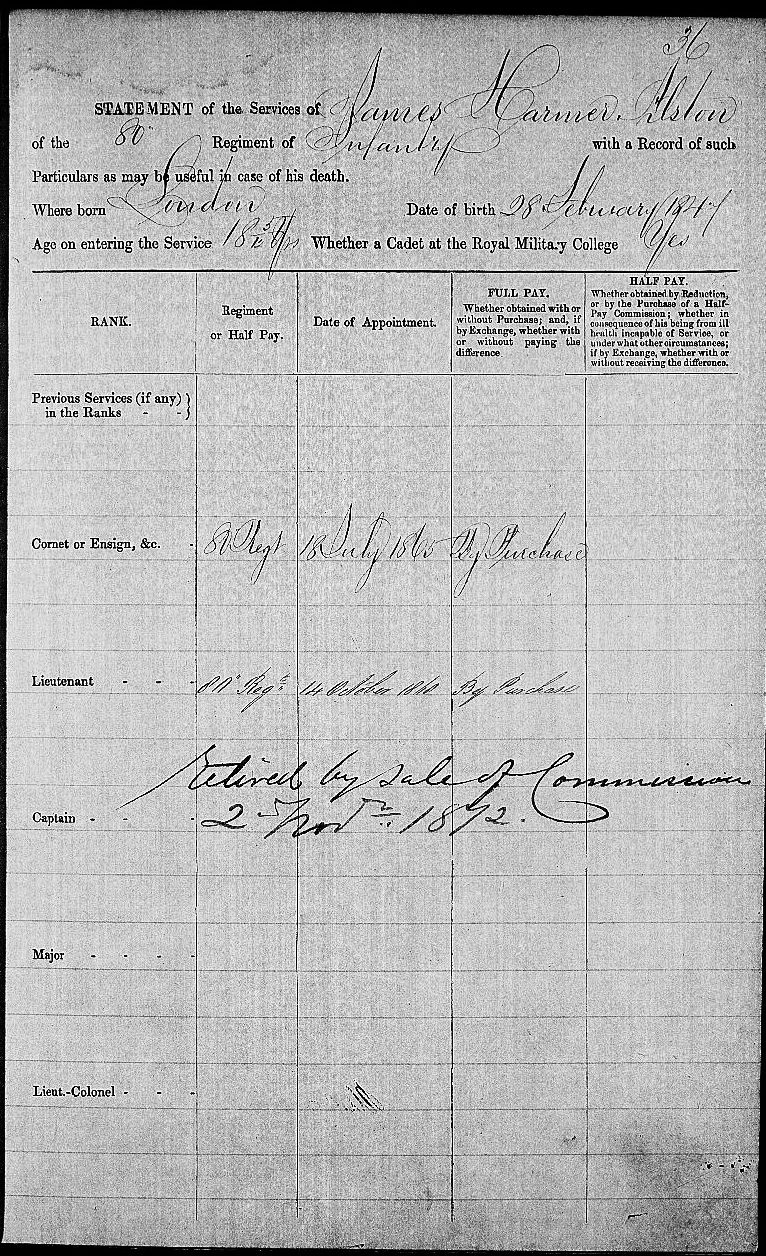 36
STATEMENT of the Services of James Harmer Elston
of the 80th Regiment of Infantry with a Record of such
Particulars as may be useful in case of his death.
Where born London Date of birth 28 February 1847
Age on entering the Service 18 5/12 Yrs Whether a Cadet at the Royal Military College Yes
RANK.
Regiment
or Half Pay.
Date of Appointment.
FULL PAY.
Whether obtained with or
without Purchase; and, if
by Exchange, whether with
or without paying the
difference
HALF PAY.
Whether obtained by Reduction,
or by the Purchase of a Half-
Pay Commission; whether in
consequence of his being from ill
health incapable of Service, or
under what other circumstances;
if by Exchange, whether with or
without receiving the difference.
Previous Services (if any) }
in the Ranks - - }
Cornet or Ensign, &c. - 80 Regt 18 July 1865 By Purchase
Lieutenant - - - 80th Regt. 14 October By Purchase
Retired by sale of Commission
Captain - - - 2nd Novr. 1872.
Major - - - -
Lieut.-Colonel - - -